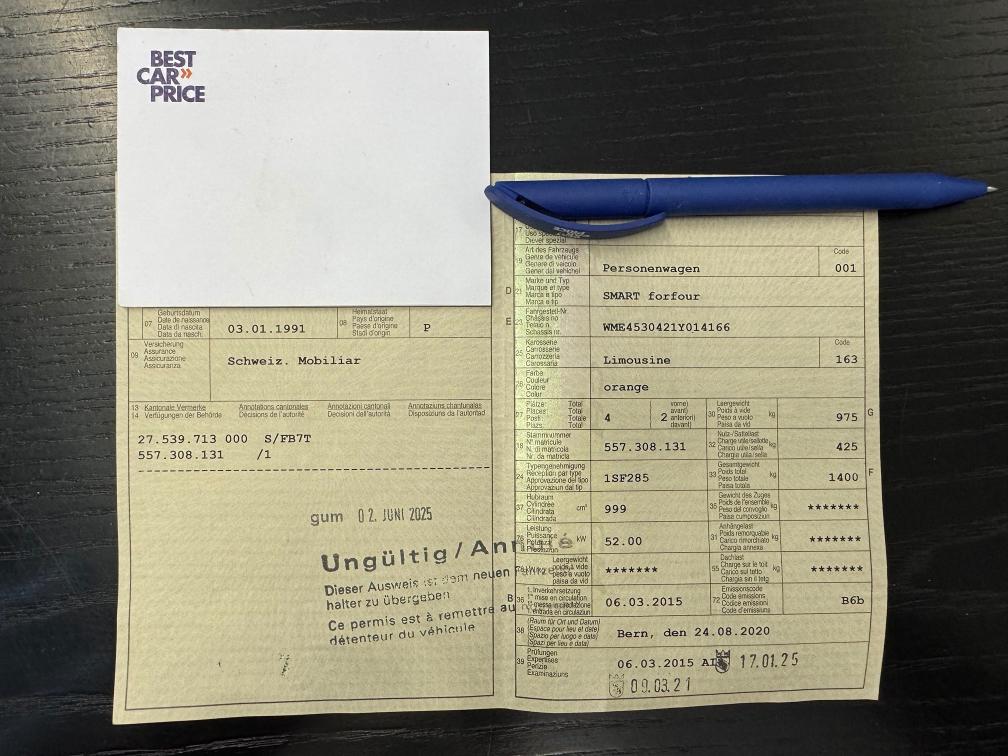 BEST
CAR»
PRICE
07 Geburtsdatum
Date de naissance
Data di nascita
Data da nasch.
03.01.1991
08 Heimatstaat
Pays d'origine
Paese d'origine
Stadi d'origin
P
09 Versicherung
Assurance
Assicurazione
Assicuranza
Schweiz. Mobiliar
13 Kantonale Vermerke Annotations cantonales Annotazioni cantonali Annotaziuns chantunalas
14 Verfügungen der Behörde Décisions de l'autorité Decisioni dell'autorità Disposiziuns da l'autoritad
27.539.713 000 S/FB7T
557.308.131 /1
gum 02. JUNI 2025
Ungültig /
Dieser Ausweis ist dem neuen
halter zu übergeben
Ce permis est à remettre au
détenteur du véhicule
17
Diever spezial
19 Art des Fahrzeugs
Genre de véhicule
Genere di veicolo
Gener dal vehichel
Personenwagen
Code
001
D 21 Marke und Typ
Marque et type
Marca e tipo
Marca e tip
SMART forfour
E 23 Fahrgestell-Nr.
Châssis no
Telaio n.
Schassis nr.
WME4530421Y014166
25 Karosserie
Carrosserie
Carrozzeria
Carossaria
Limousine
Code
163
26 Farbe
Couleur
Colore
Colur
orange
27 Plätze: Total
Places: Total
Posti: Totale
Plazs: Total
4
2
vorne)
avant)
anteriori)
davant)
30 Leergewicht
Poids à vide
Peso a vuoto
Paisa da vid
kg
975
G
18 Stammnummer
N° matricule
N. di matricola
Nr. da matricla
557.308.131
32 Nutz-/Sattellast
Charge utile/sellette
Carico utile/sella
Chargia utila/sella
kg
425
24 Typengenehmigung
Réception par type
Approvazione del tipo
Approvaziun dal tip
1SF285
33 Gesamtgewicht
Poids total
Peso totale
Paisa totala
kg
1400
F
37 Hubraum
Cylindrée
Cilindrata
Cilindrada
cm³
999
35 Gewicht des Zuges
Poids de l'ensemble
Peso del convoglio
Paisa cumposiziun
kg
*******
76 Leistung
Puissance
Potenza
kW
52.00
31 Anhängelast
Poids remorquable
Carico rimorchiato
Chargia annexa
kg
*******
Leergewicht
poids à vide
peso a vuoto
paisa da vid
*******
55 Dachlast
Charge sur le toit
Carico sul tetto
Chargia sin il tetg
kg
*******
B 36 1. Inverkehrsetzung
1re mise en circulation
1. messa in circolazione
1. entrada en circulaziun
06.03.2015
72 Emissionscode
Code émissions
Codice emissioni
Code d'emissiuns
B6b
38 (Raum für Ort und Datum)
(Espace pour lieu et date)
(Spazio per luogo e data)
(Spazi per lieu e data)
Bern, den 24.08.2020
39 Prüfungen
Expertises
Perizie
Examinaziuns
06.03.2015 17.01.25
09.03.21